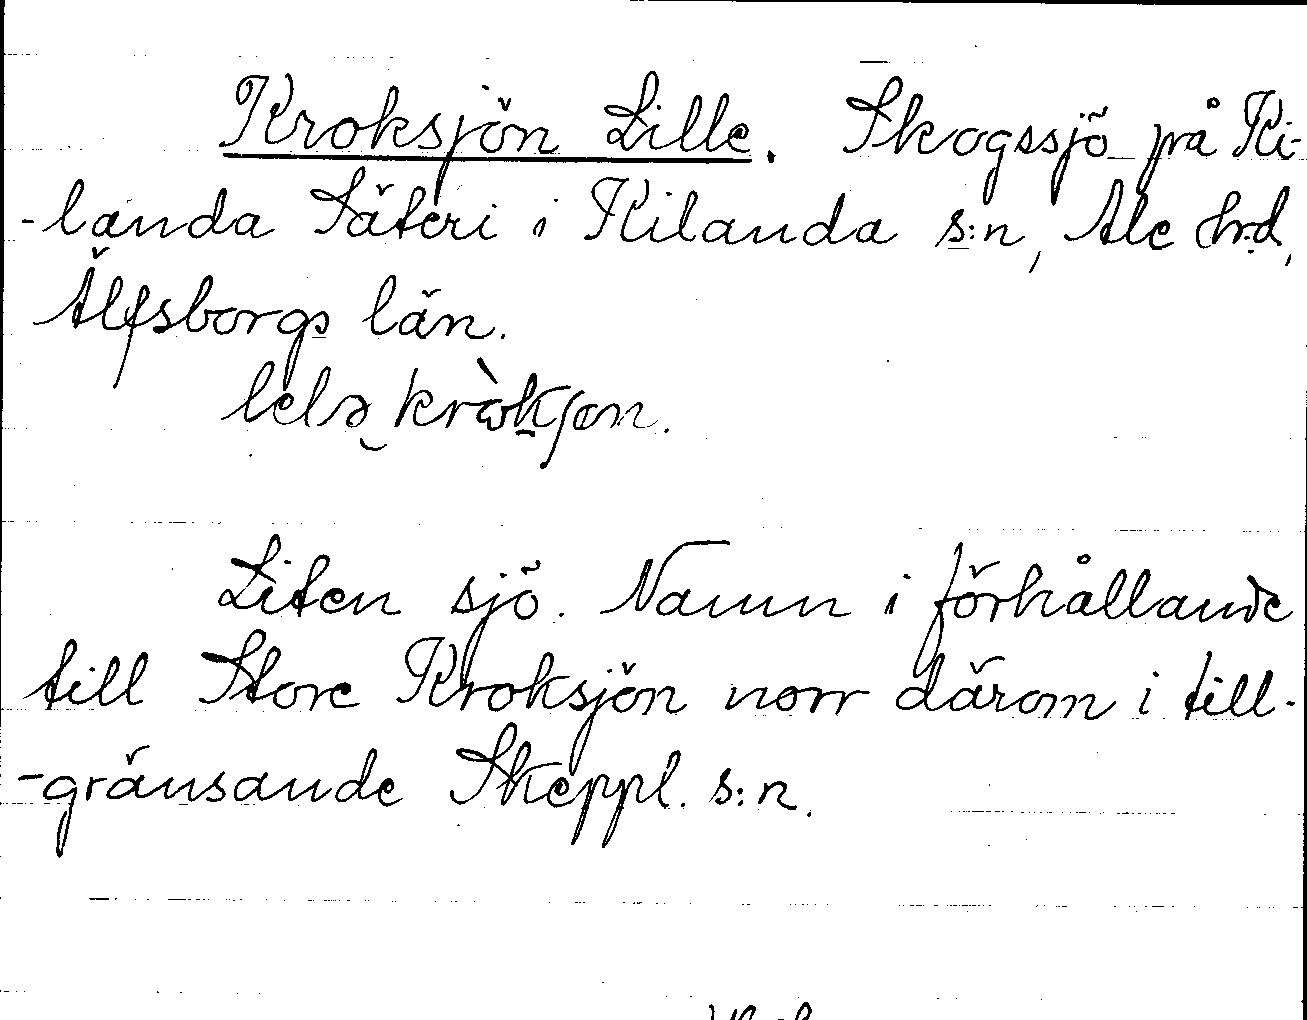 Kroksjön Lille. Skogssjö på Ki-
-landa Säteri i Kilanda s:n, Ale hrd,
Älfsborgs län.
Liten sjö. Namn i förhållande
till Store Kroksjön norr därom i till-
-gränsande Skeppl. s:n.